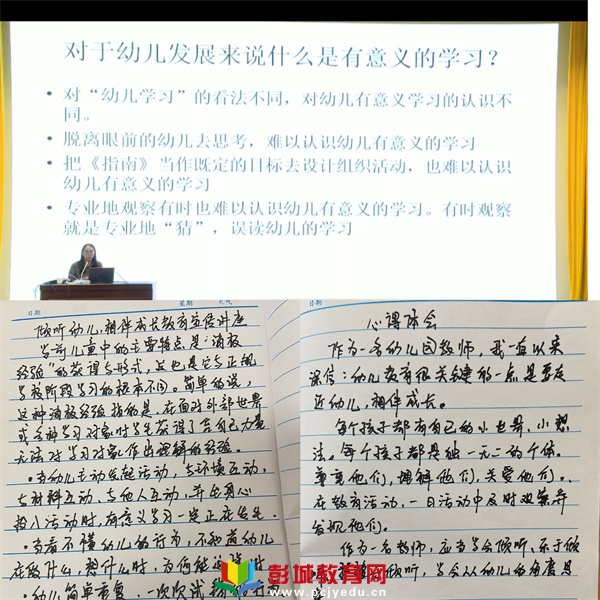 对于幼儿发展来说什么是有意义的学习？
• 对“幼儿学习”的看法不同，对幼儿有意义学习的认识不
同。
• 脱离眼前的幼儿去思考，难以认识幼儿有意义的学习
• 把《指南》当作既定的目标去设计组织活动，也难以认识
幼儿有意义的学习
• 专业地观察有时也难以认识幼儿有意义的学习。有时观察
就是专业地“猜”，误读幼儿的学习
日期 星期 天气
倾听幼儿，相伴成长教育宣传讲座
学前儿童中的主要特点是：消极
经验”的获得与形式，这也是它与正规
学校阶段学习的根本不同。简单的说，
这种消极经验指的是，在面对外部世界
或各种学习对象时学生获得了靠自己力量
无法对学习对象作出理解的经验。
·当幼儿主动发起活动，与环境互动、
与材料互动、与他人互动，并全身心
投入活动时，有意义学习一定正在发生。
·当看不懂幼儿的行为，不知道幼儿
在做什么，想什么时，为何能
·幼儿简单重复，一次次试
日期
心得体会
作为一名幼儿园教师，我一直以来
深信：幼儿教育很关键的一点是要走
近幼儿，相伴成长。
每个孩子都有自己的小世界，小想
法。每个孩子都是独一无二的个体。
尊重他们，理解他们，关爱他们。
在教育活动、一日活动中及时观察并
发现他们。
作为一名教师，应当学会倾听，乐于倾
倾听，学会从幼儿的角度思
彭城教育网
www.pcjyedu.com